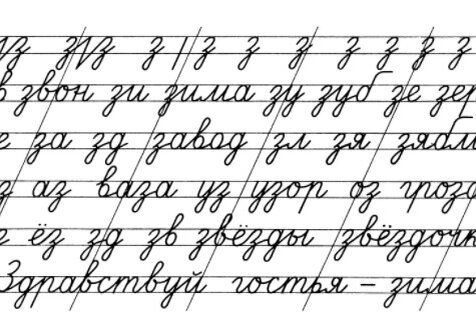 з з з з з з з з з з з
звон зи зима зу зуб зе зер
е за зд завод зл зя зябли
з аз ваза уз узор оз гроза
е ёз зд зв звёзды звёздочк
Здравствуй гостья – зима